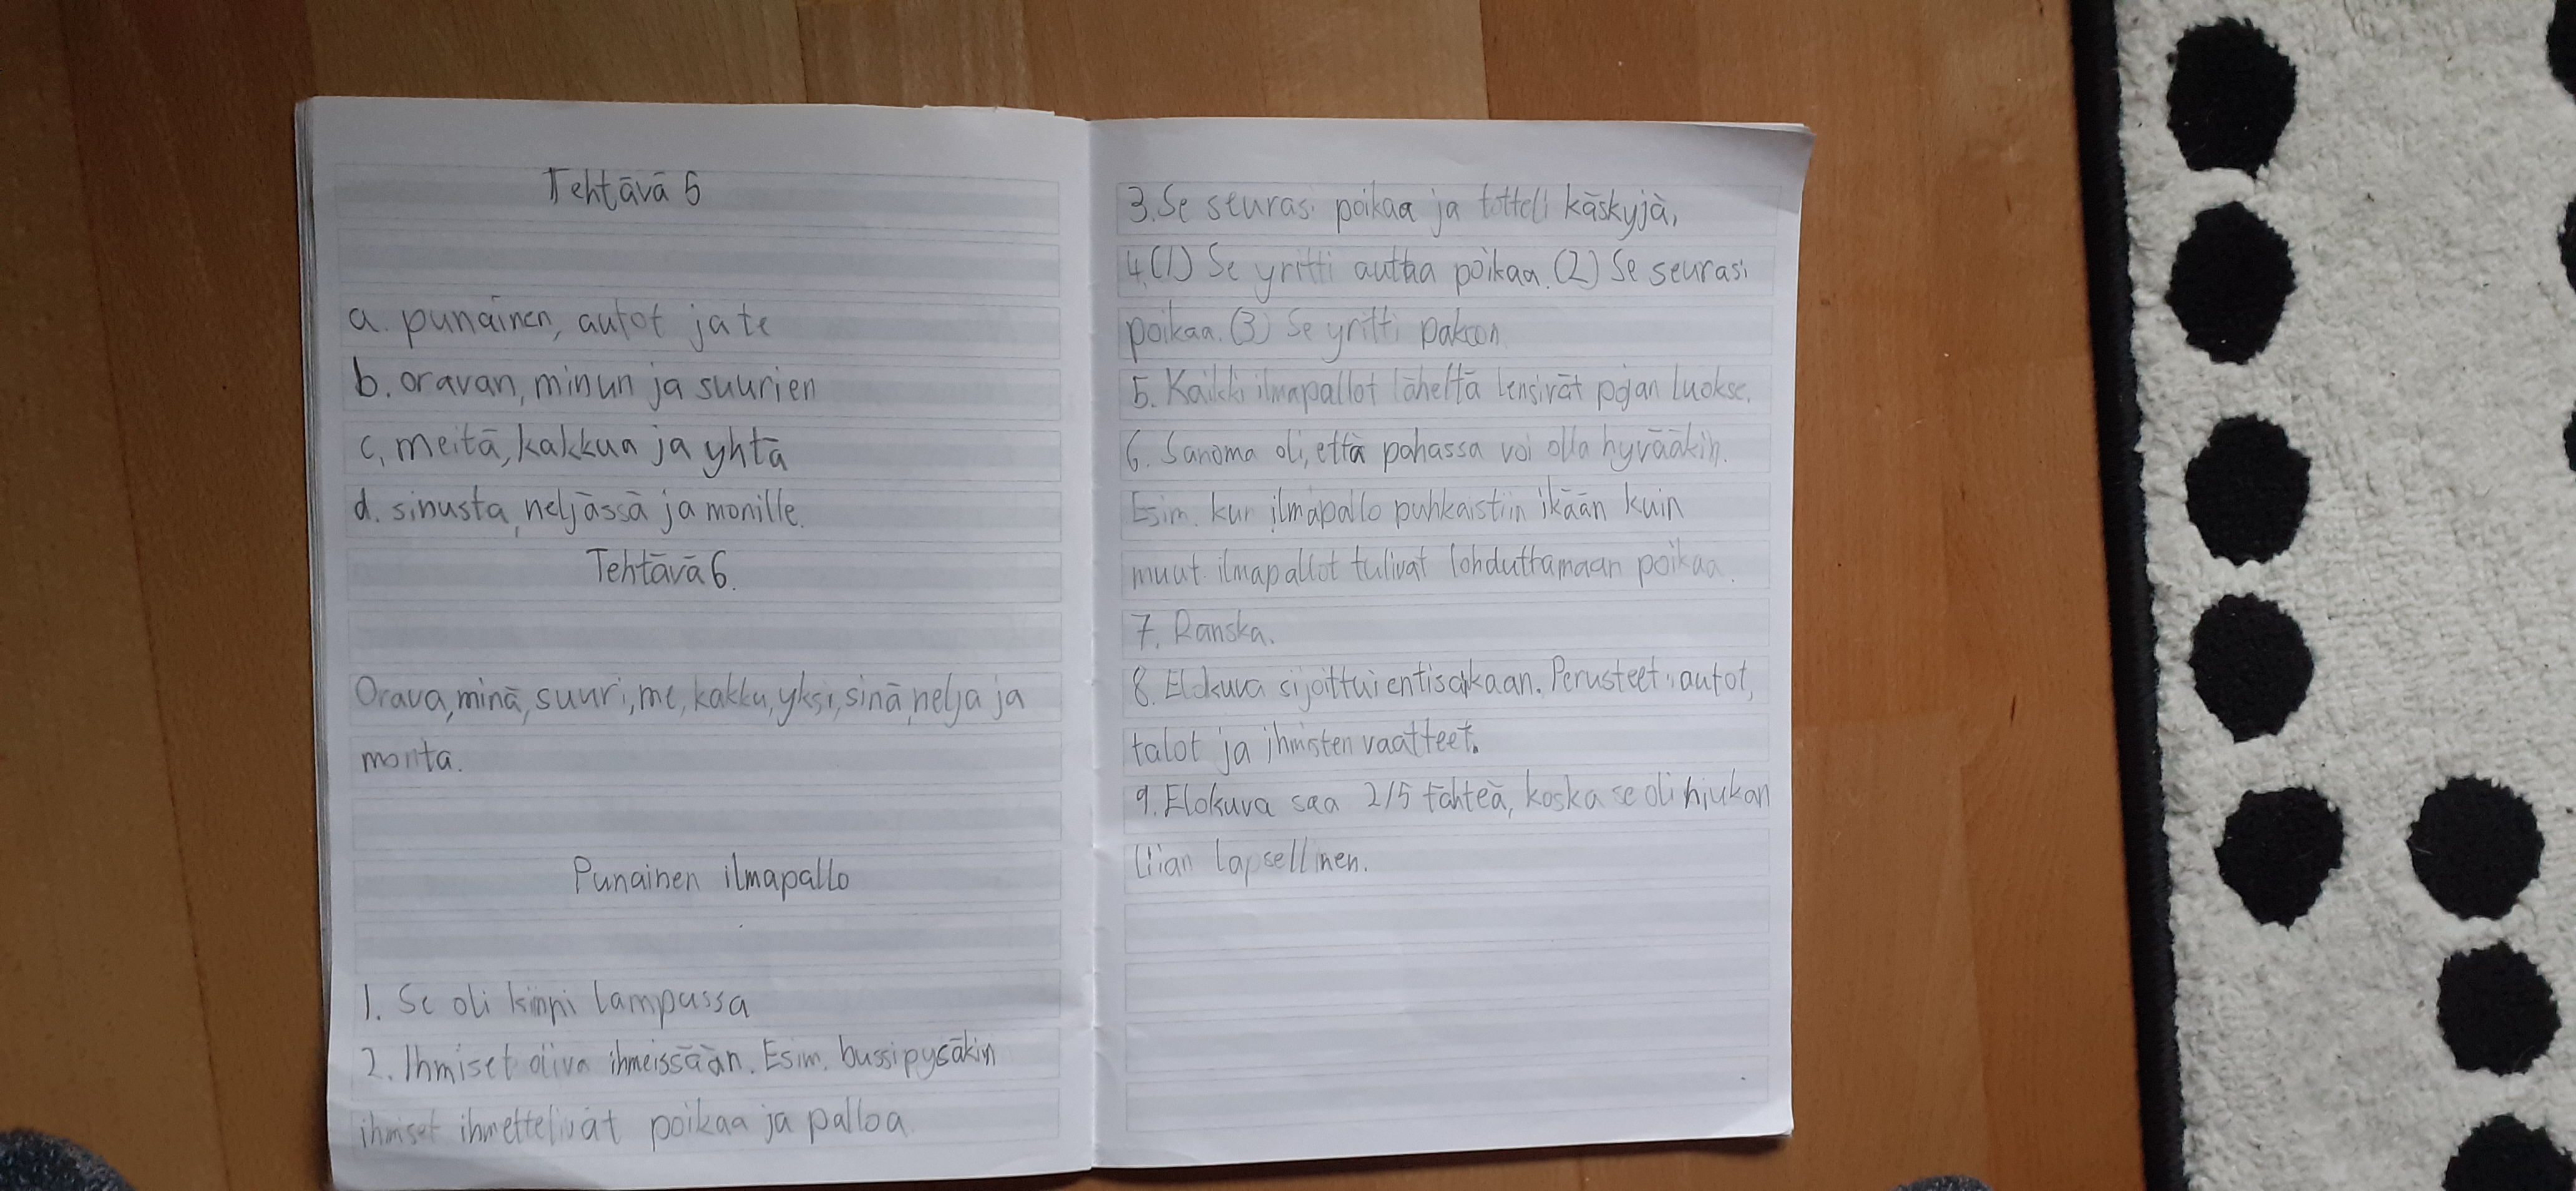 Tehtävä 5
a. punainen, autot ja te
b. oravan, minun ja suurien
c. meitä, kakkua ja yhtä
d. sinusta, neljässä ja monille.
Tehtävä 6.
Orava, minä, suuri, me, kakku, yksi, sinä, nelja ja
monta.
Punainen ilmapallo
1. Se oli kiinni lampussa
2. Ihmiset oliva ihmeissään. Esim. bussipysäkin
ihmiset ihmettelivät poikaa ja palloa.
3. Se seurasi poikaa ja totteli käskyjä,
4. (1) Se yritti auttaa poikaa. (2) Se seurasi
poikaa. (3) Se yritti pakoon
5. Kaikki ilmapallot läheltä lensivät pojan luokse.
6. Sanoma oli, että pahassa voi olla hyvääkin.
Esim. kun ilmapallo puhkaistiin ikään kuin
muut ilmapallot tulivat lohduttamaan poikaa.
7. Ranska.
8. Elokuva sijoittui entisaikaan. Perusteet: autot,
talot ja ihmisten vaatteet.
9. Elokuva saa 2/5 tähteä, koska se oli hiukan
liian lapsellinen.